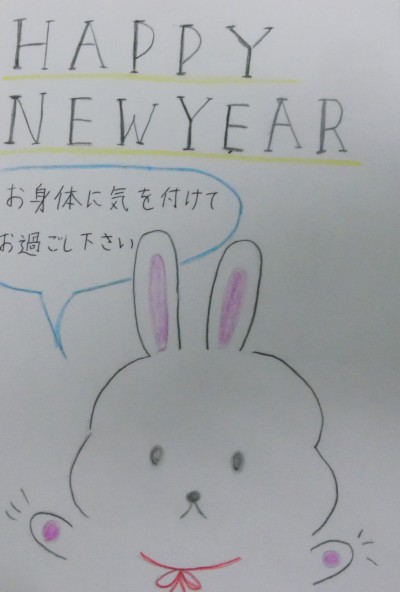 HAPPY
NEWYEAR
お身体に気を付けて
お過ごし下さい